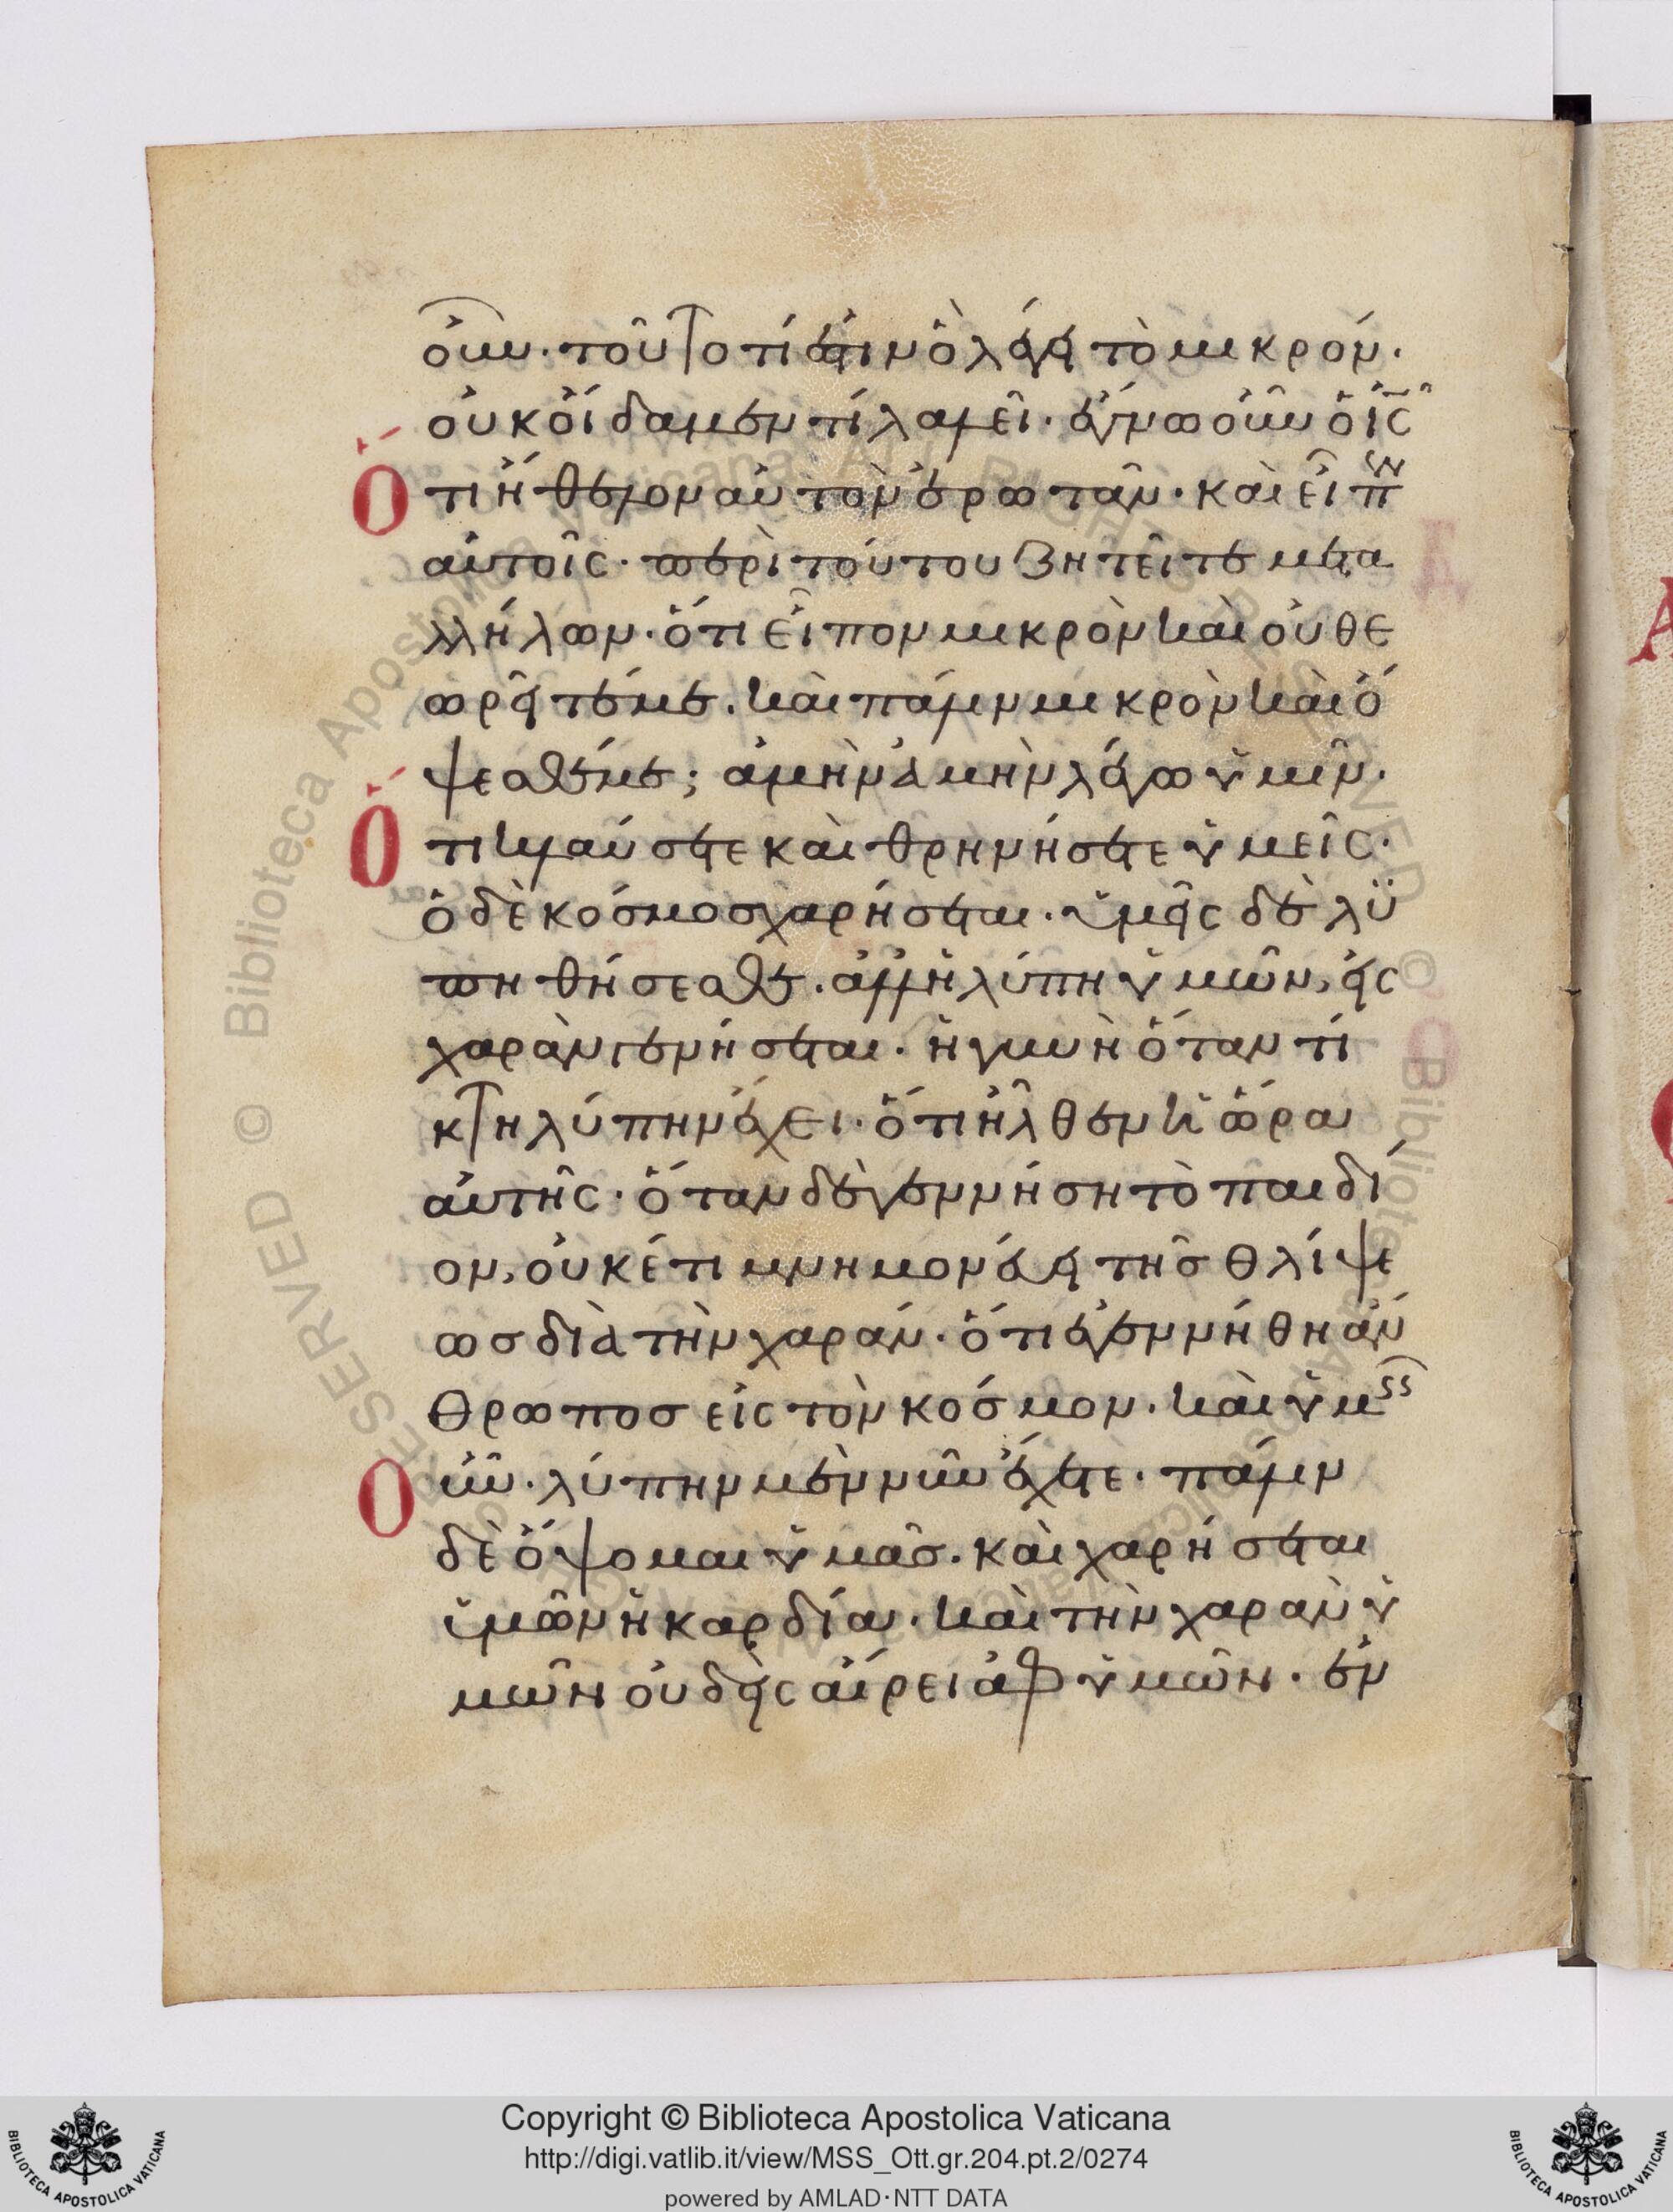 οὖν· τοῦτο τί ἐστιν ὃ λέγει τὸ μικρόν·
οὐκ οἴδαμεν τί λαλεῖ· ἔγνω οὖν ὁ ις
Ὅτι ἤθελον αὐτὸν ἐρωτᾶν· καὶ εἶπεν
αὐτοῖς· περὶ τούτου ζητεῖτε μετα
λλήλων· ὅτι εἶπον μικρὸν καὶ οὐ θε
ωρεῖτέ με. καὶ πάλιν μικρὸν καὶ ὄ
ψεσθέ με; ἀμὴν ἀμὴν λέγω ὑμῖν·
Ὅτι κλαύσετε καὶ θρηνήσετε ὑμεῖς·
ὁ δὲ κόσμος χαρήσεται· ὑμεῖς δὲ λυ
πηθήσεσθε. ἀλλ' ἡ λύπη ὑμῶν, εἰς
χαρὰν γενήσεται· ἡ γυνὴ ὅταν τί
κτη λύπην ἔχει· ὅτι ἦλθεν ἡ ὥρα
αὐτῆς· ὅταν δὲ γεννήση τὸ παιδί
ον, οὐκέτι μνημονεύει τῆς θλίψε
ως διὰ τὴν χαράν· ὅτι ἐγεννήθη ἄν
θρωπος εἰς τὸν κόσμον· καὶ ὑμεῖς
Οὖν· λύπην μὲν νῦν ἔχετε· πάλιν
δὲ ὄψομαι ὑμᾶς. καὶ χαρήσεται
ὑμῶν ἡ καρδία· καὶ τὴν χαρὰν ὑ
μῶν οὐδεὶς αἴρει ἀφ' ὑμῶν· ἐν
Copyright © Biblioteca Apostolica Vaticana
http://digi.vatlib.it/view/MSS_Ott.gr.204.pt.2/0274
powered by AMLAD·NTT DATA
BIBLIOTECA APOSTOLICA VATICANA
BIBLIOTECA APOSTOLICA VATICANA